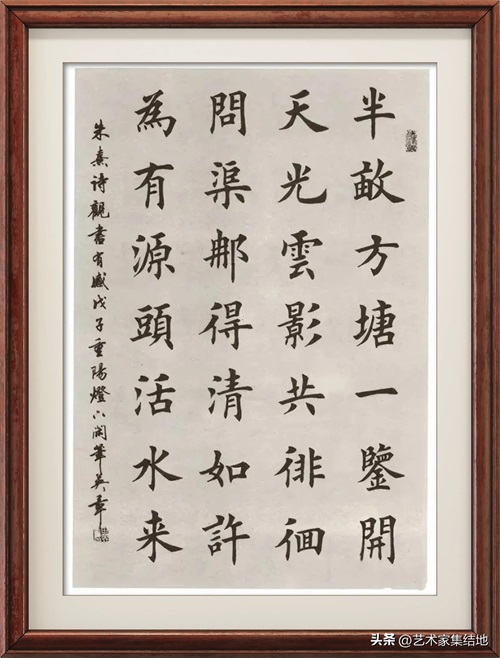 半畝方塘一鑒開
天光雲影共徘徊
問渠那得清如許
為有源頭活水来
朱熹诗觀書有感戊子重陽燈下閑筆英章
头条 @艺术家集结地